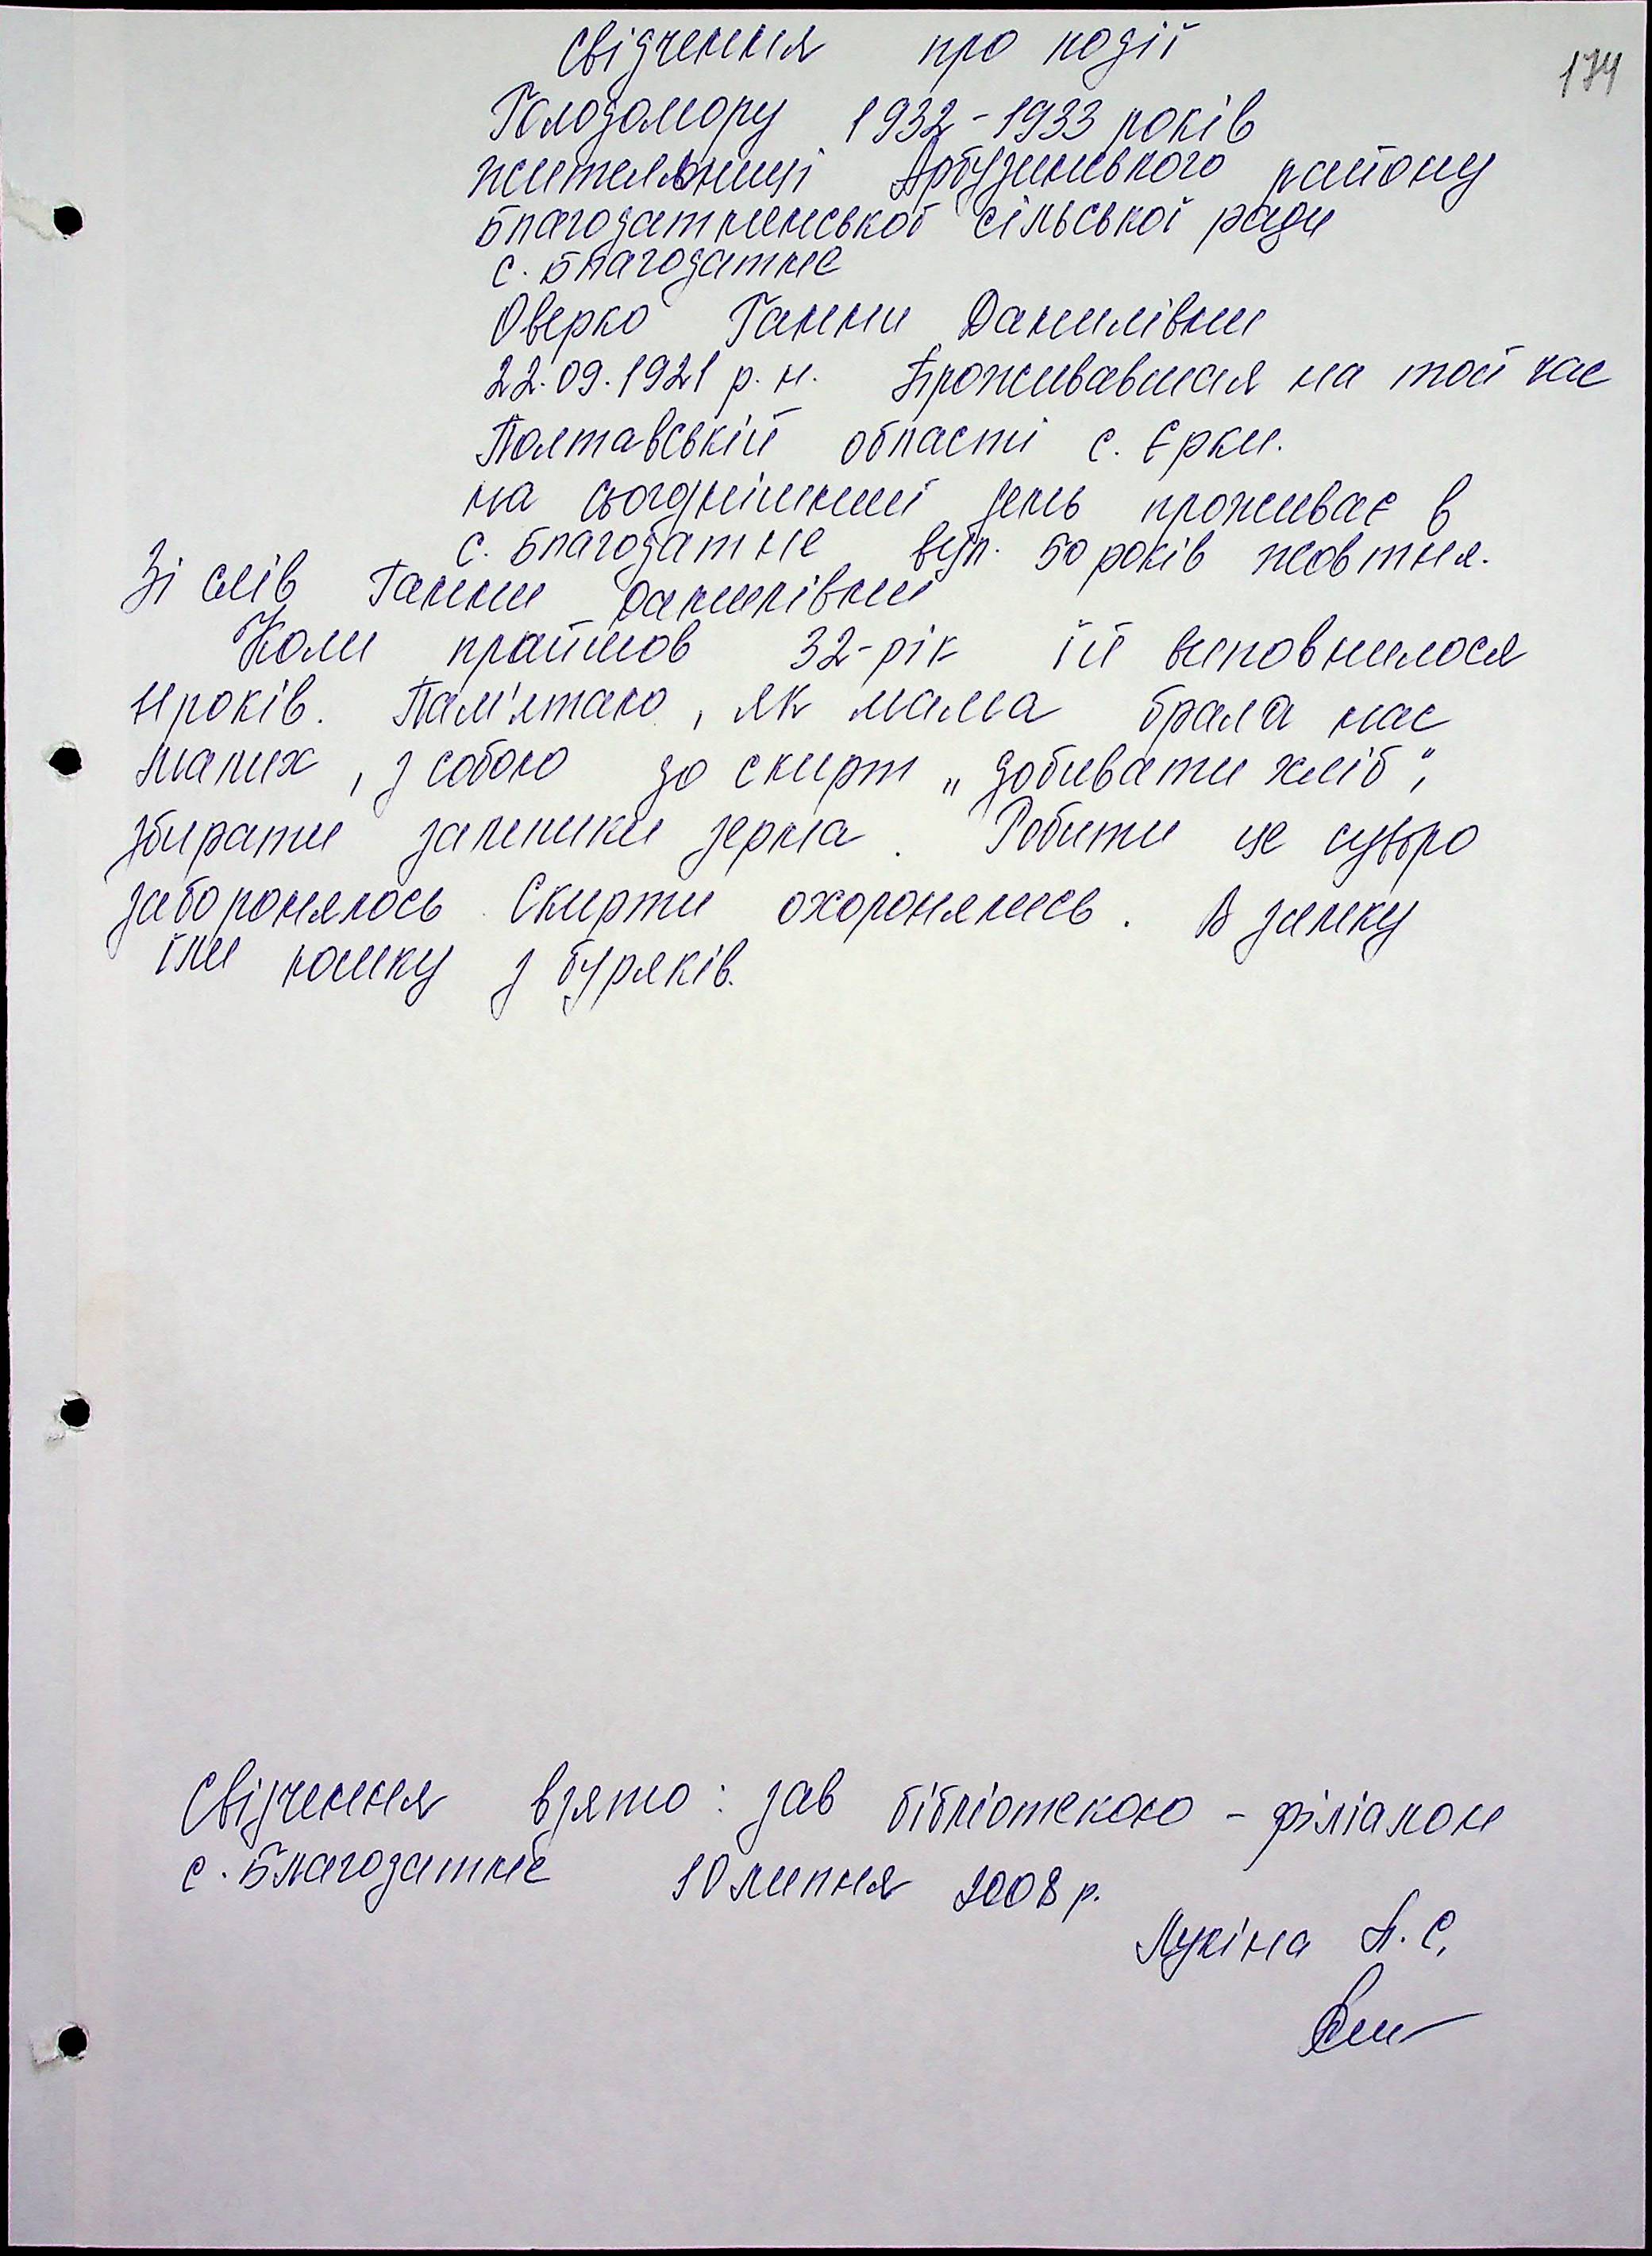 174
Свідчення про події
Голодомору 1932-1933 років
жительниці Арбузинського району
Благодатненської сільської ради
с. Благодатне
Оверко Ганни Данилівни
22.09.1921 р. н. Проживавшая на той час
Полтавській області с. Єрки.
на сьогоднішний день проживає в
с. Благодатне вул. 50 років жовтня.
Зі слів Ганни Данилівни
Коли прайшов 32-рік їй виповнилося
11 років. Пам'ятаю, як мама брала нас
малих, з собою до скирт „добивати хліб",
збирати залишки зерна. Робити це суворо
заборонялось. Скирти охоронялись. В зимку
їли юшку з буряків.
Свідчення взято: зав бібліотекою - філіалом
с. Благодатне 10 липня 2008 р.
Лукіна Л. С.